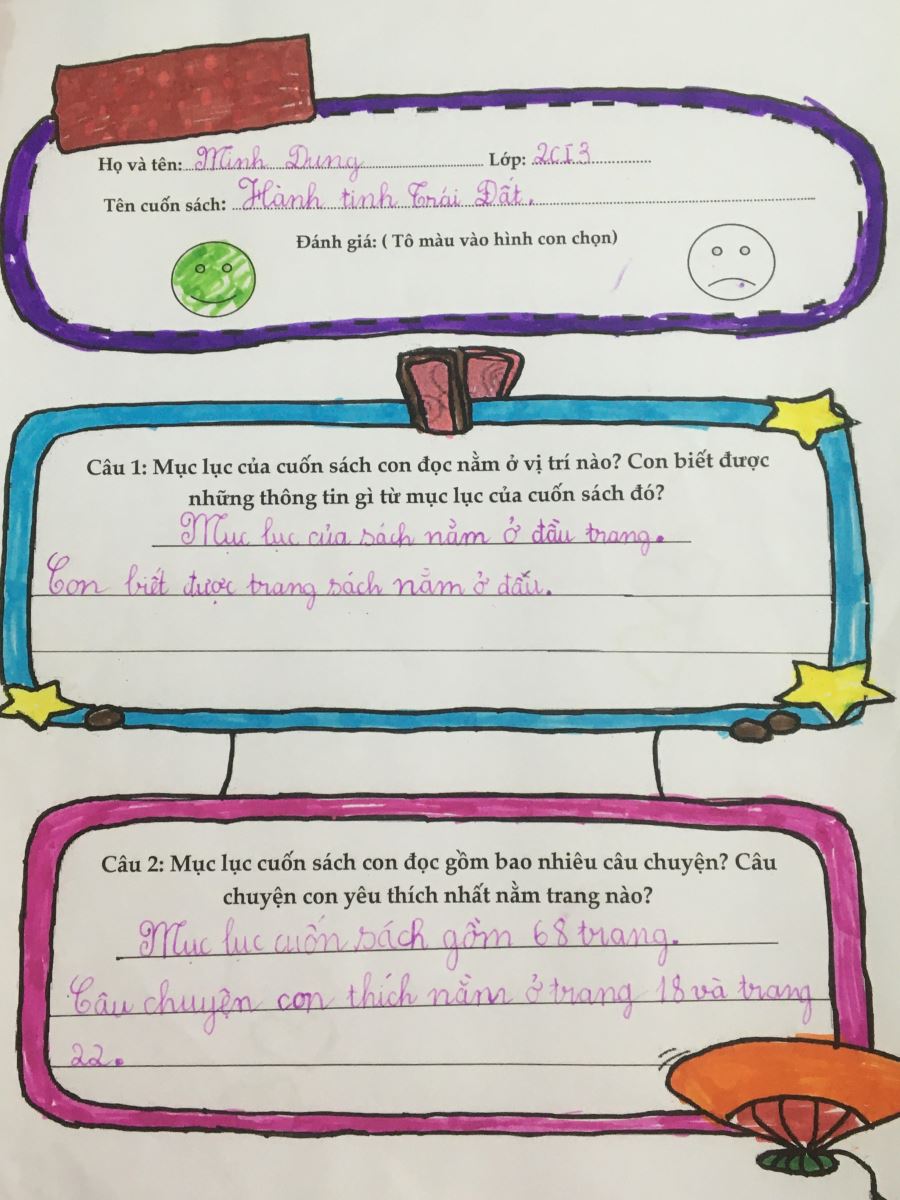 Họ và tên: Minh Dung Lớp: 2CI3
Tên cuốn sách: Hành tinh Trái Đất.
Đánh giá: ( Tô màu vào hình con chọn)
Câu 1: Mục lục của cuốn sách con đọc nằm ở vị trí nào? Con biết được
những thông tin gì từ mục lục của cuốn sách đó?
Mục lục của sách nằm ở đầu trang.
Con biết được trang sách nằm ở đấu.
Câu 2: Mục lục cuốn sách con đọc gồm bao nhiêu câu chuyện? Câu
chuyện con yêu thích nhất nằm trang nào?
Mục lục cuốn sách gồm 68 trang.
Câu chuyện con thích nằm ở trang 18 và trang
22.